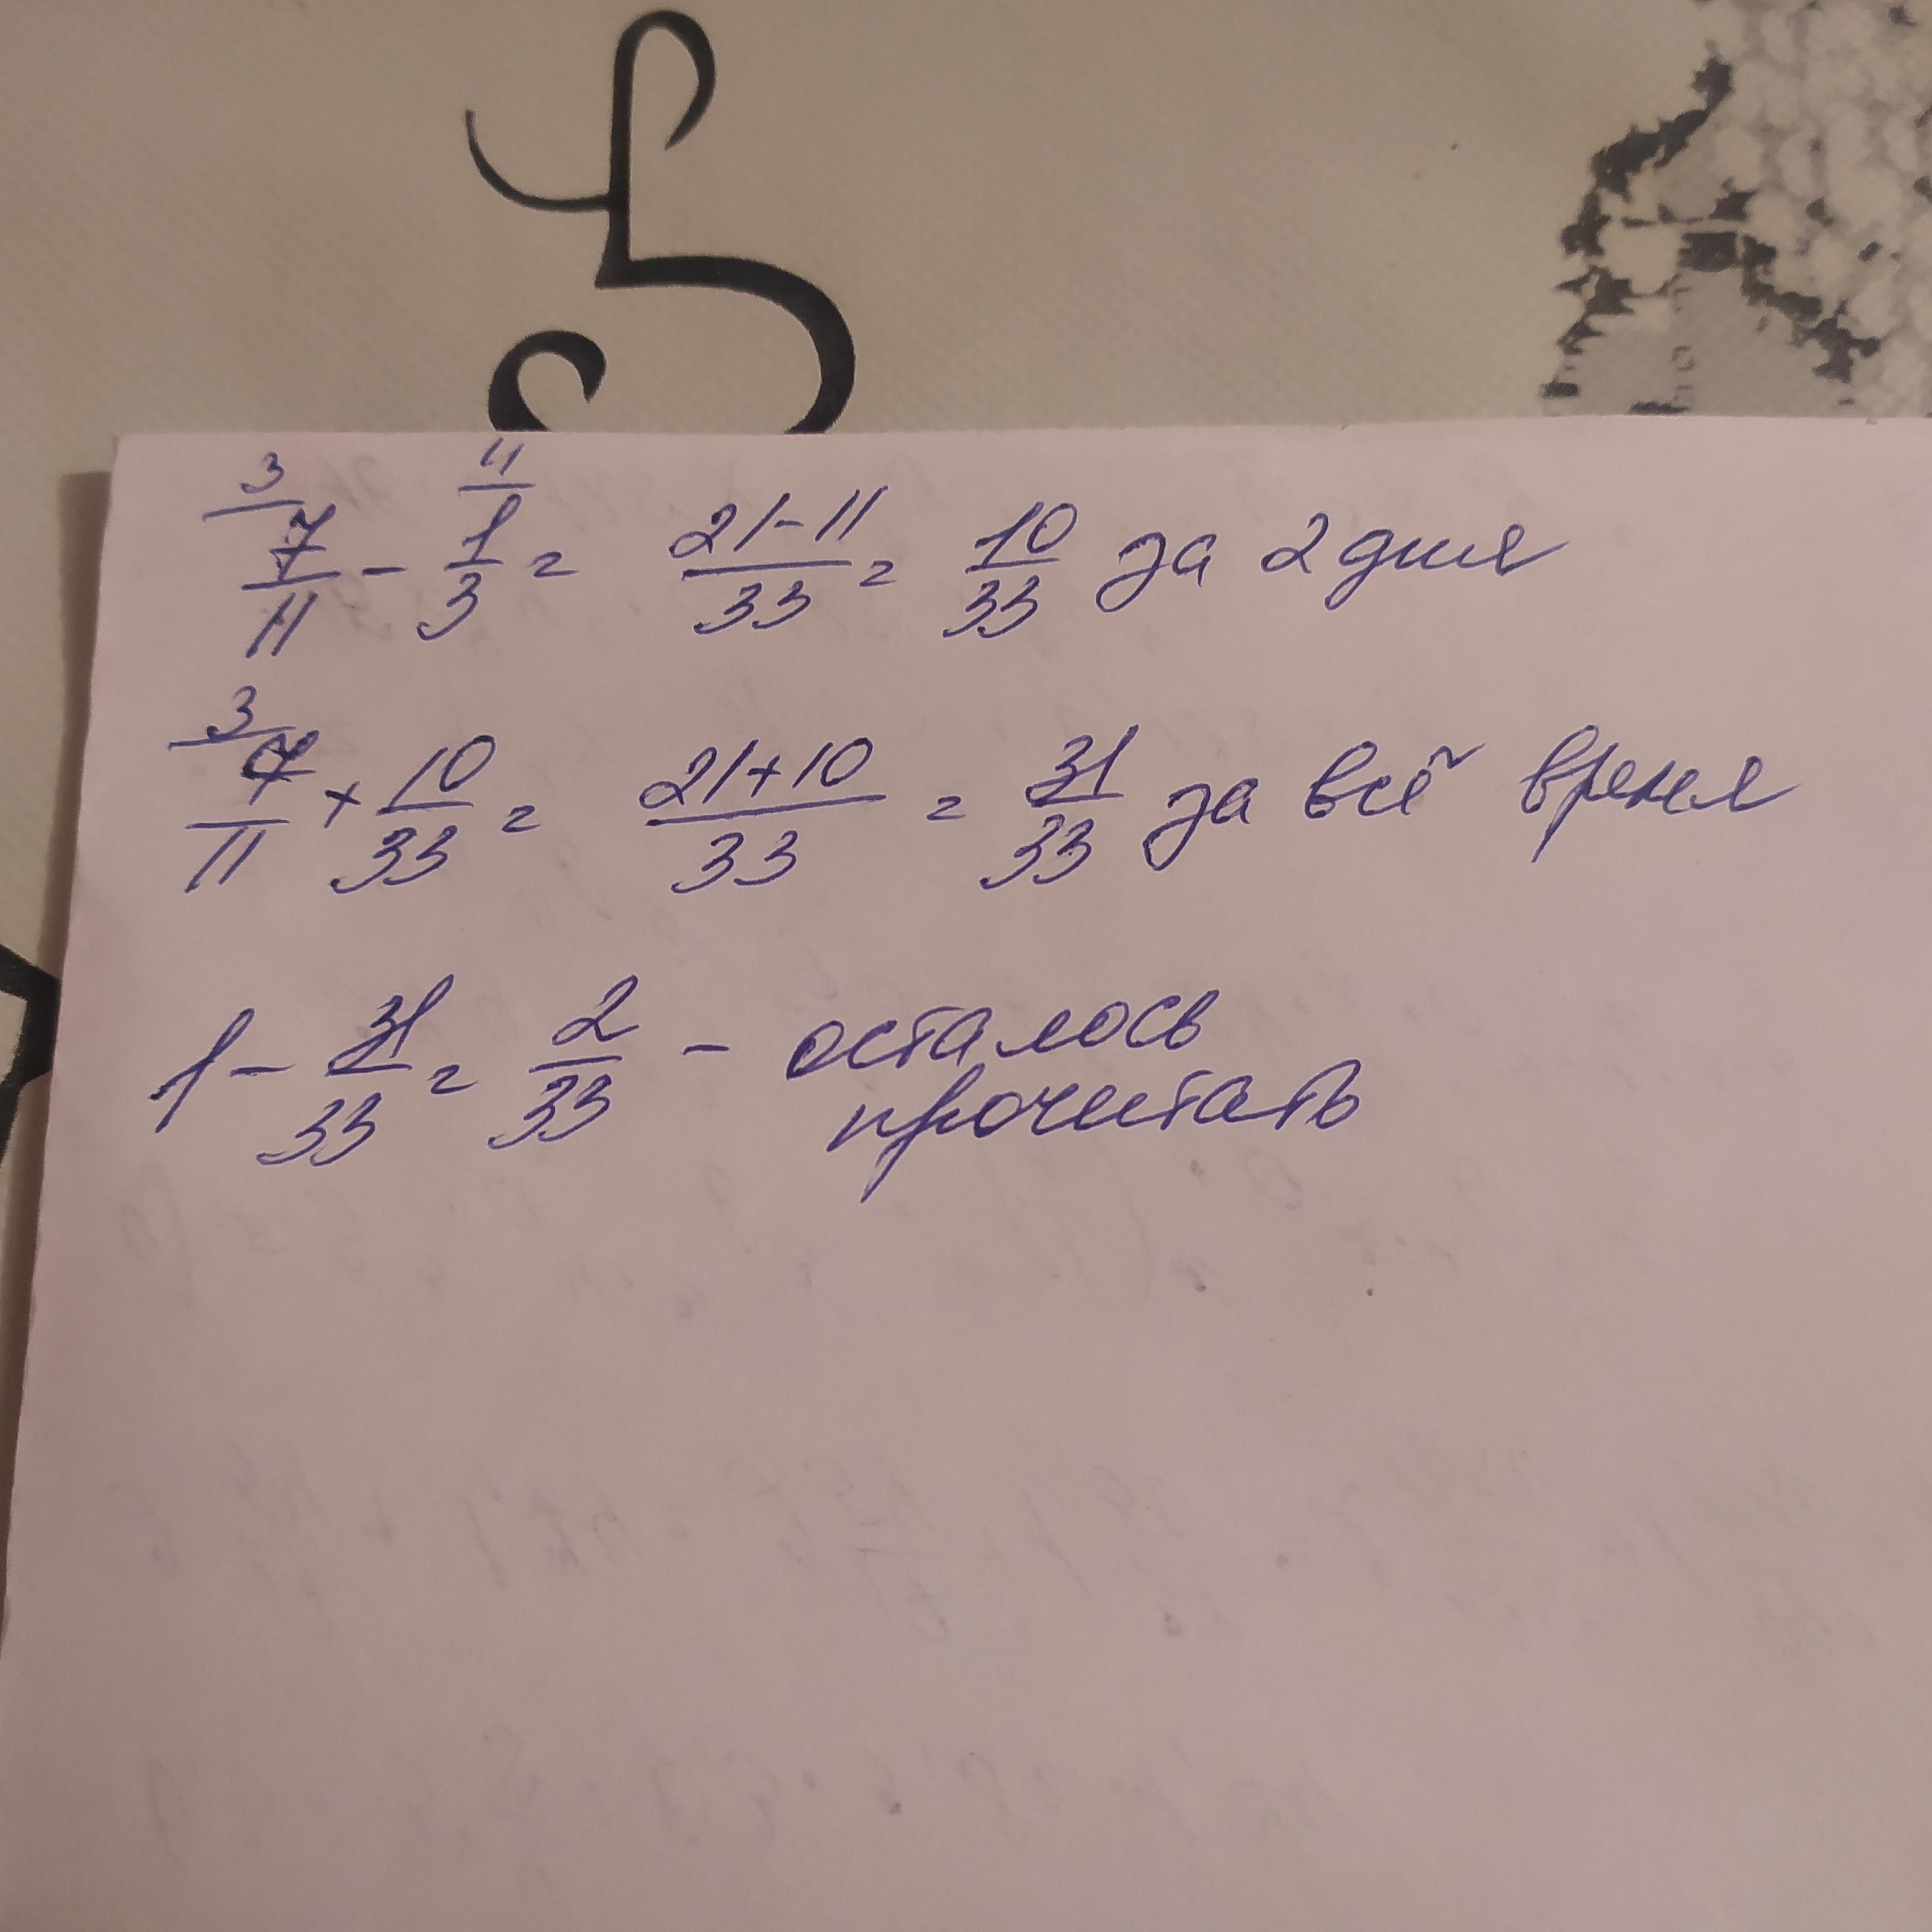 3/ 7/11 - 11/ 1/3 = 21-11/33 = 10/33 за 2 дня
3/ 7/11 + 10/33 = 21+10/33 = 31/33 за всё время
1 - 31/33 = 2/33 - осталось
прочитать